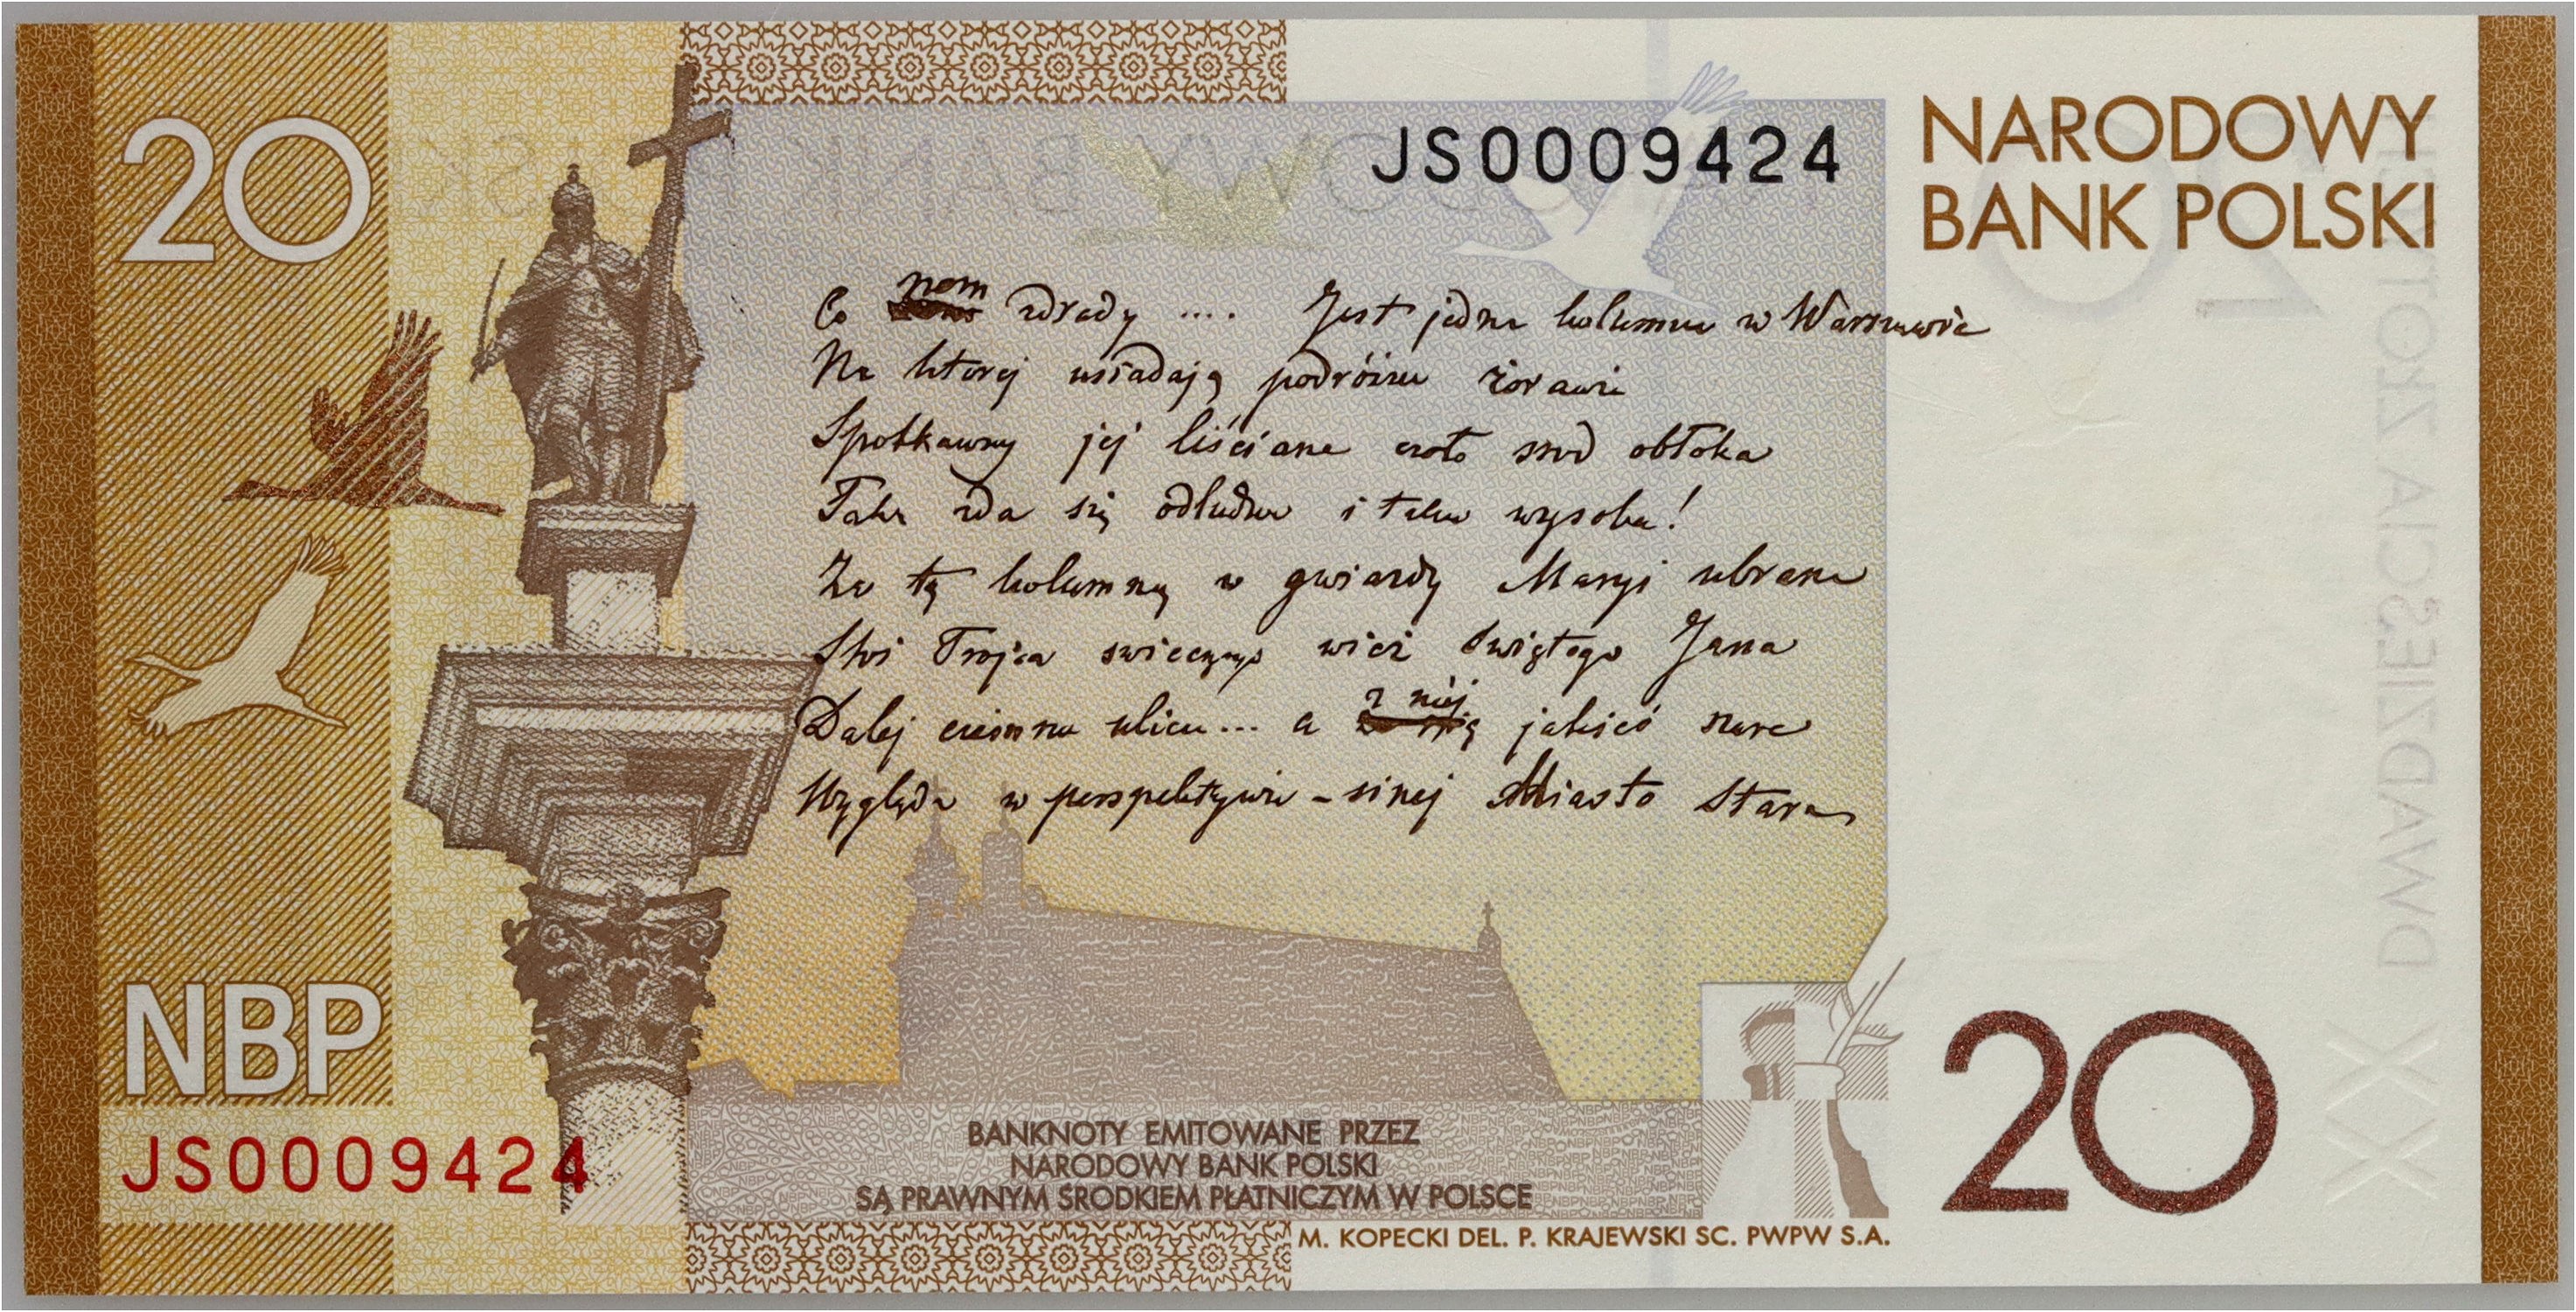 20
JS0009424
NARODOWY
BANK POLSKI
nam
Co zdrady .... Jest jedna kolumna w Warszawie
Na ktorej usiadają podróżne żorawie
Spotkawszy jej liściane czoło środ obłoka
Taka zda się odludna i taka wysoka!
Za tą kolumną w gwiazdy Maryi ubrana
Stoi Trojca swiecznego wież świętego Jana
z niéj
Dalej ciemna ulica... a jakieś szare
Wygląda w perspektywie - sinej Miasto Stare
NBP
JS0009424
BANKNOTY EMITOWANE PRZEZ
NARODOWY BANK POLSKI
SĄ PRAWNYM ŚRODKIEM PŁATNICZYM W POLSCE
M. KOPECKI DEL. P. KRAJEWSKI SC. PWPW S.A.
20
XX
DWADZIEŚCIA ZŁOTYCH